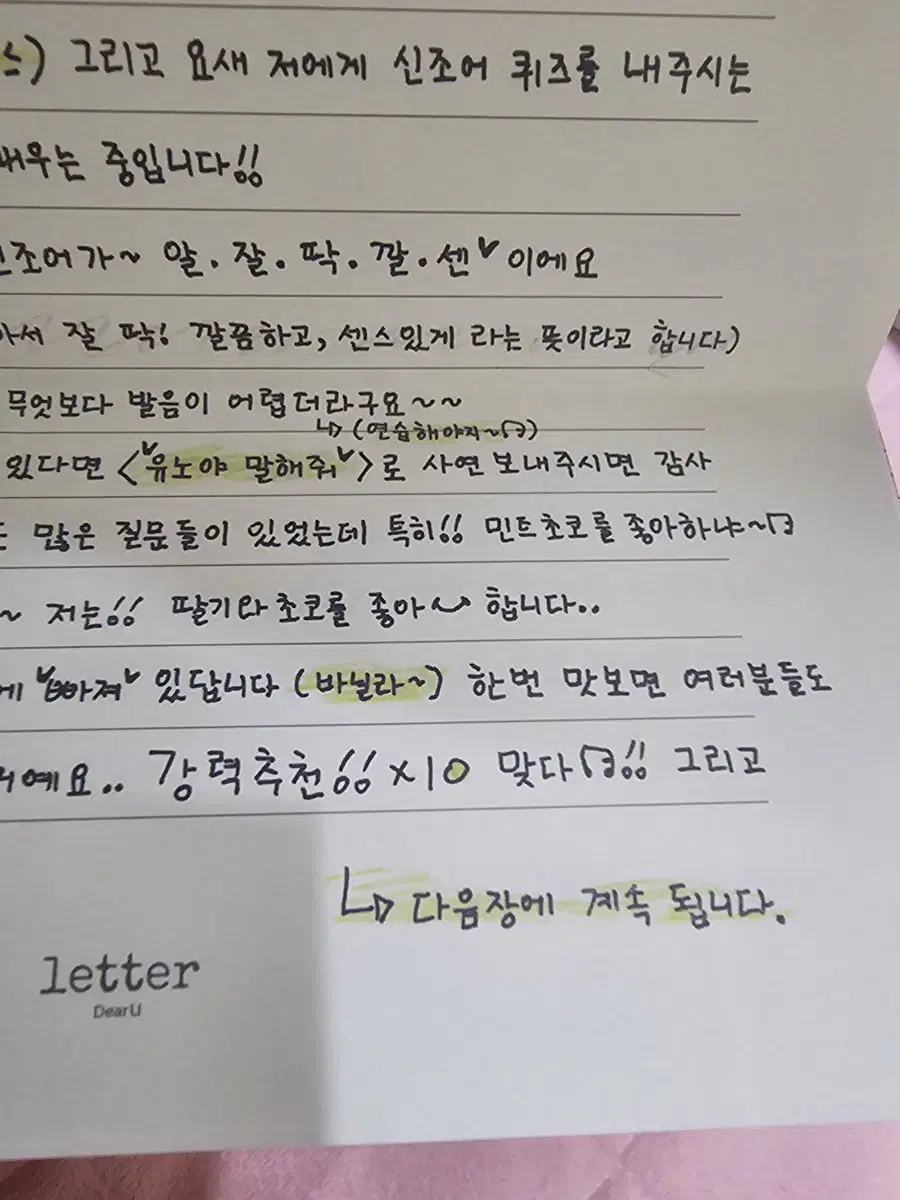 스) 그리고 요새 저에게 신조어 퀴즈를 내주시는
배우는 중입니다!!
신조어가~ 알.잘.딱.깔.센♥이에요
아서 잘 딱! 깔끔하고, 센스있게 라는 뜻이라고 합니다)
무엇보다 발음이 어렵더라구요~~
↳ (연습해야지~ㅋ)
있다면 <♥유노야 말해줘♥>로 사연 보내주시면 감사
많은 질문들이 있었는데 특히!! 민트초코를 좋아하냐~ㅋ
~ 저는!! 딸기와 초코를 좋아~ 합니다..
에 ♥빠져♥ 있답니다 (바닐라~) 한번 맛보면 여러분들도
예요.. 강력추천!! x10 맞다ㅋ!! 그리고
↳ 다음장에 계속 됩니다.
letter
DearU